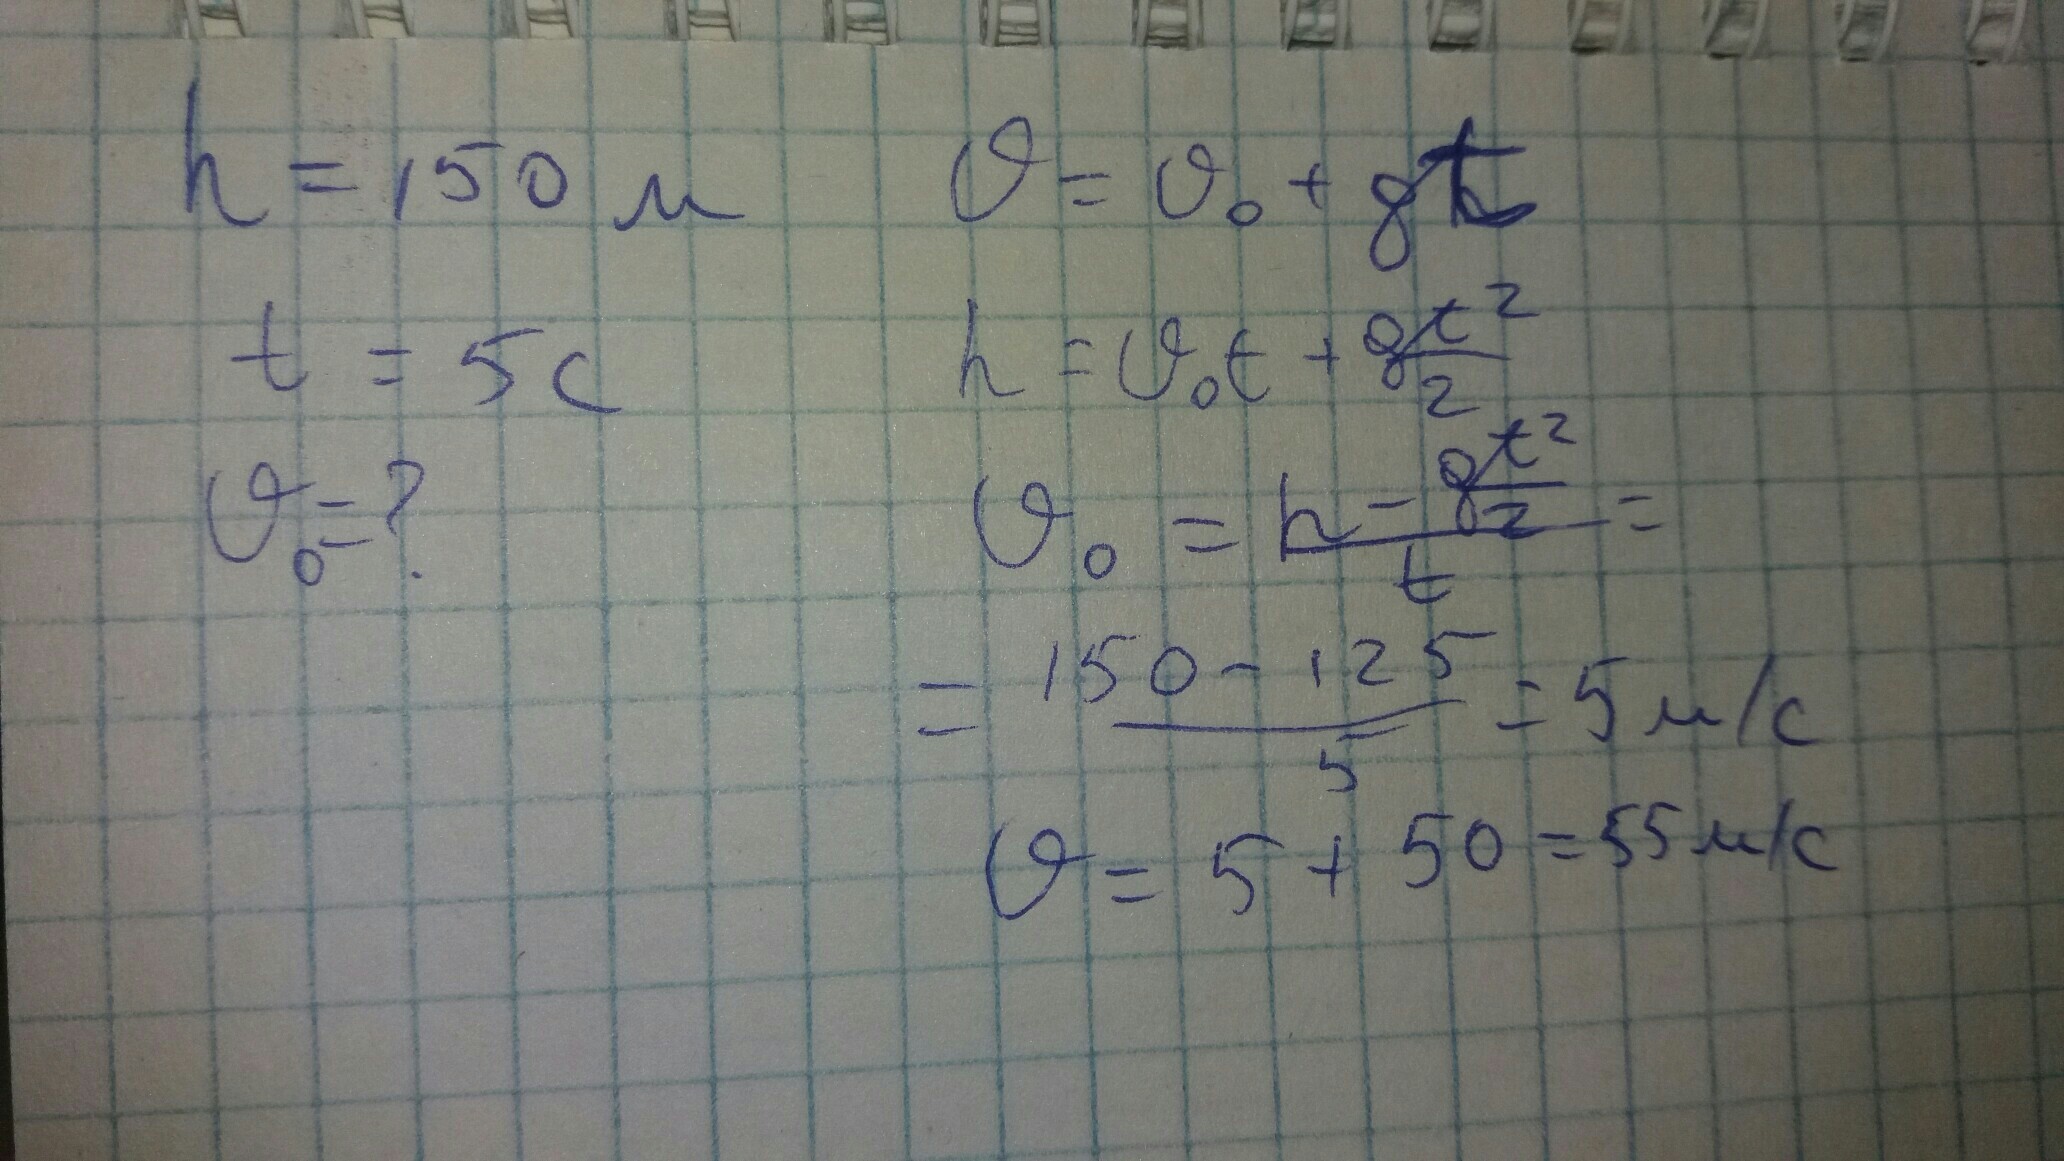 h = 150 м
t = 5 с
υ₀ = ?
υ = υ₀ + gt
h = υ₀t + gt²/2
υ₀ = (h - gt²/2)/t =
= (150 - 125)/5 = 5 м/с
υ = 5 + 50 = 55 м/с